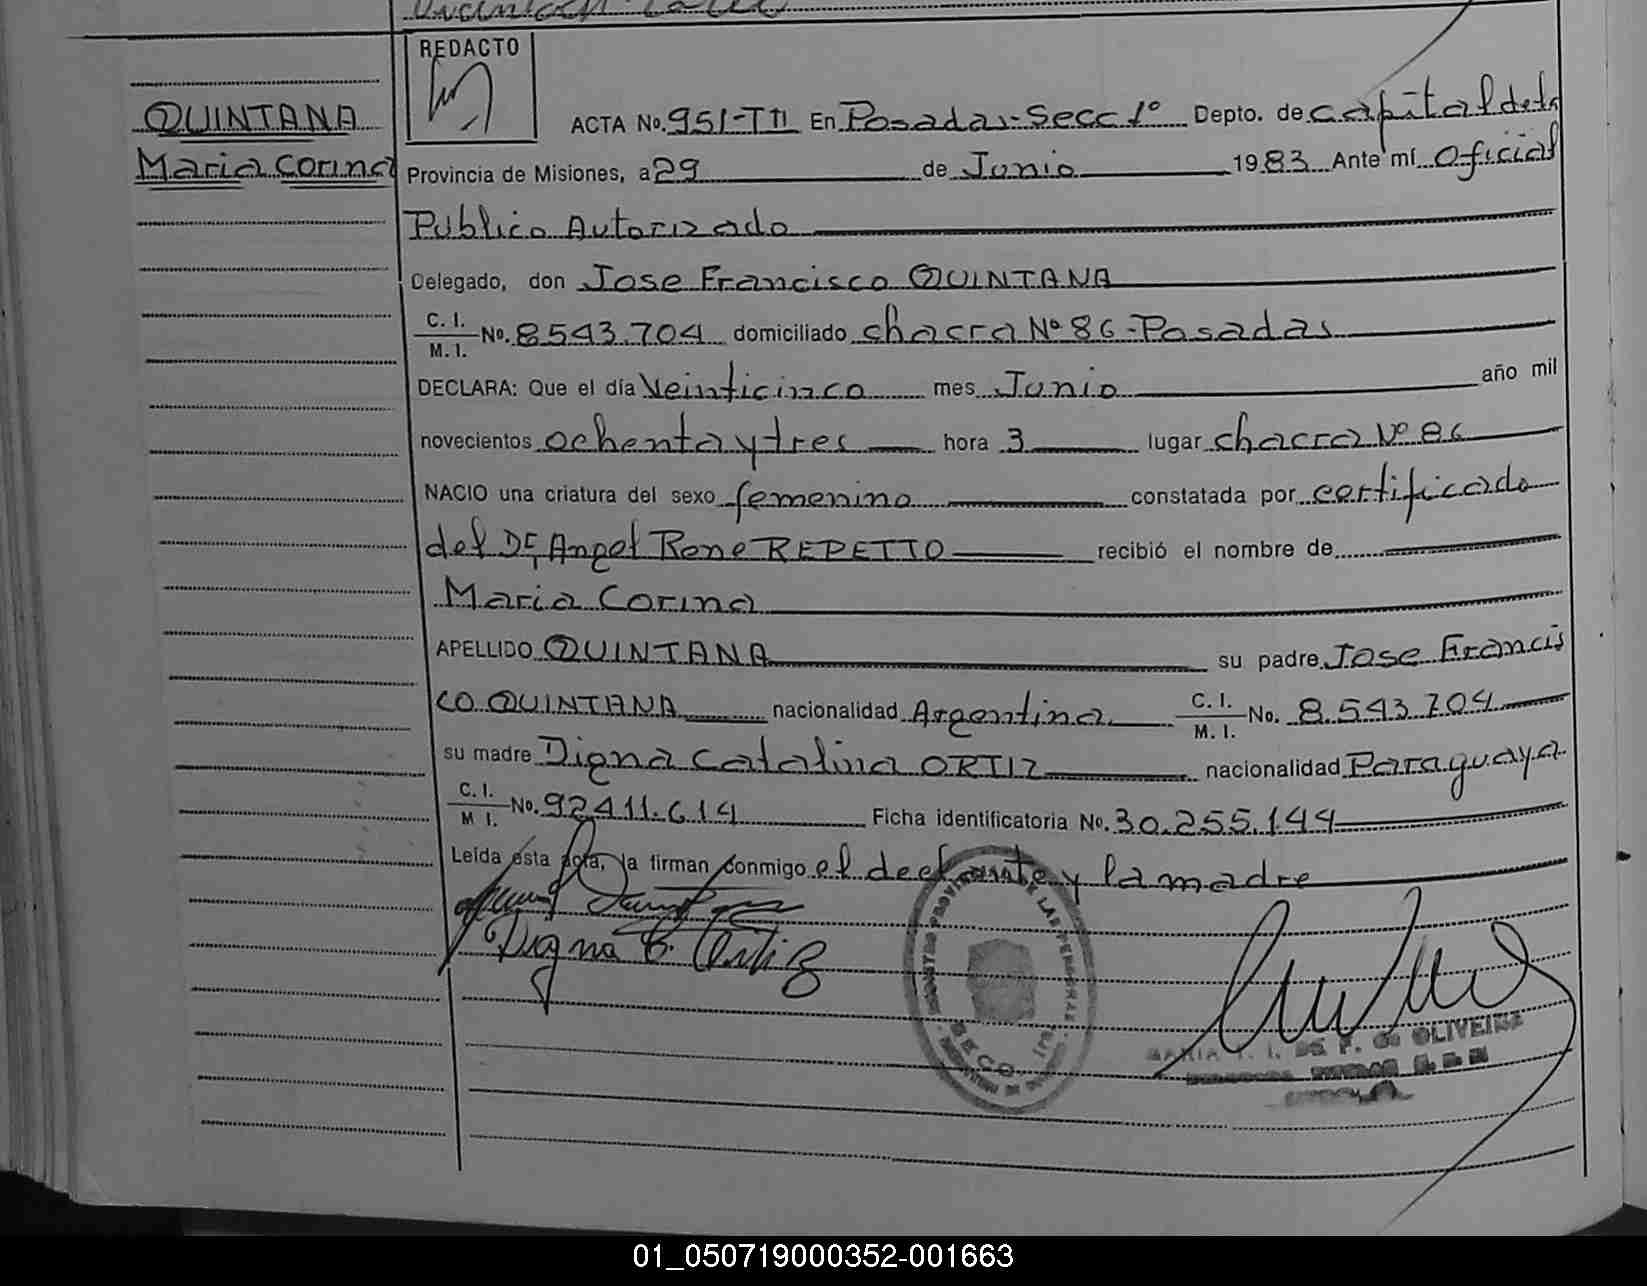 REDACTO
QUINTANA
Maria Corina
ACTA No. 951-TII En Posadas-Secc 1° Depto. de Capital de la
Provincia de Misiones, a 29 de Junio 1983 Ante mí Oficial
Público Autorizado
Delegado, don Jose Francisco QUINTANA
C. I.
M. I. No. 8.543.704 domiciliado chacra Nº 86-Posadas
DECLARA: Que el día Veinticinco mes Junio año mil
novecientos ochenta y tres hora 3 lugar chacra Nº 86
NACIO una criatura del sexo femenino constatada por certificado
del Dr. Angel Rene REPETTO recibió el nombre de
Maria Corina
APELLIDO QUINTANA su padre Jose Francis
co QUINTANA nacionalidad Argentina C. I. M. I. No. 8.543.704
su madre Digna Catalina ORTIZ nacionalidad Paraguaya
C. I.
M I. No. 92.411.614 Ficha identificatoria No. 30.255.144
Leída esta acta, la firman conmigo el declarante y la madre
Digna C. Ortiz
REGISTRO PROVINCIAL DE LAS PERSONAS
SECC. 1ra
MARIA DE F. de OLIVEIRA
01_050719000352-001663